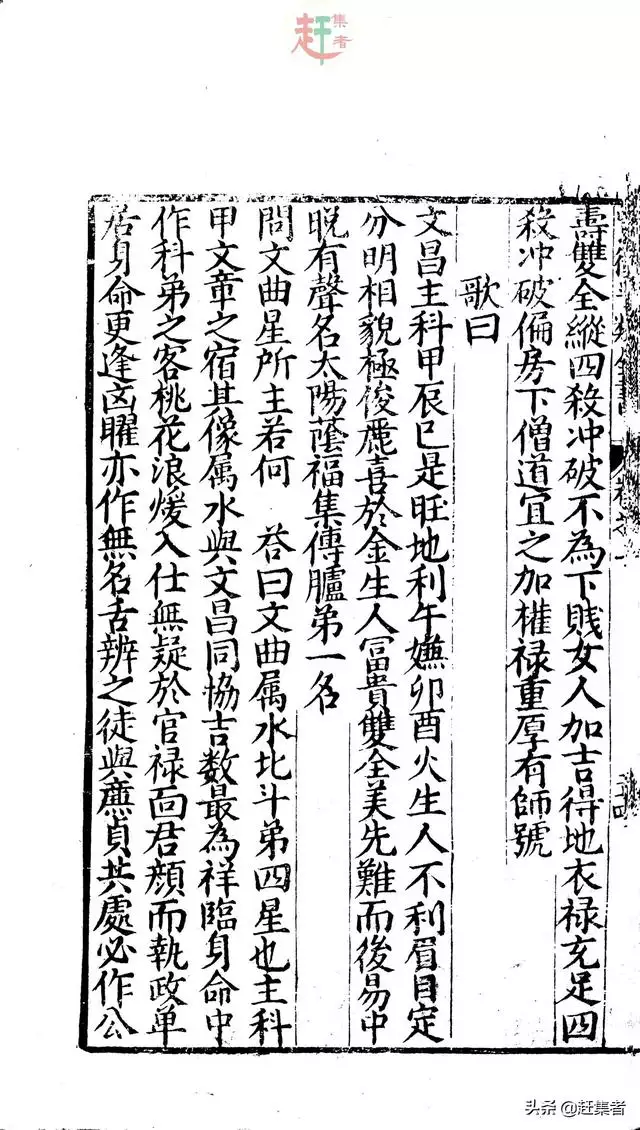 赶集者
壽雙全縱四殺冲破不為下賤女人加吉得地衣禄充足四
殺冲破偏房下僧道宜之加權禄重厚有師號
歌曰
文昌主科甲辰巳是旺地利午嫌卯酉火生人不利眉目定
分明相貌極俊麗喜於金生人冨貴雙全美先難而後易中
晩有聲名太陽蔭福集傳臚弟一名
問文曲星所主若何　荅曰文曲属水北斗弟四星也主科
甲文章之宿其像属水與文昌同協吉数最為祥臨身命中
作科弟之客桃花浪煖入仕無疑於官禄靣君顔而執政单
居身命更逢凶曜亦作無名舌辨之徒與廉貞共處必作公
头条 @赶集者